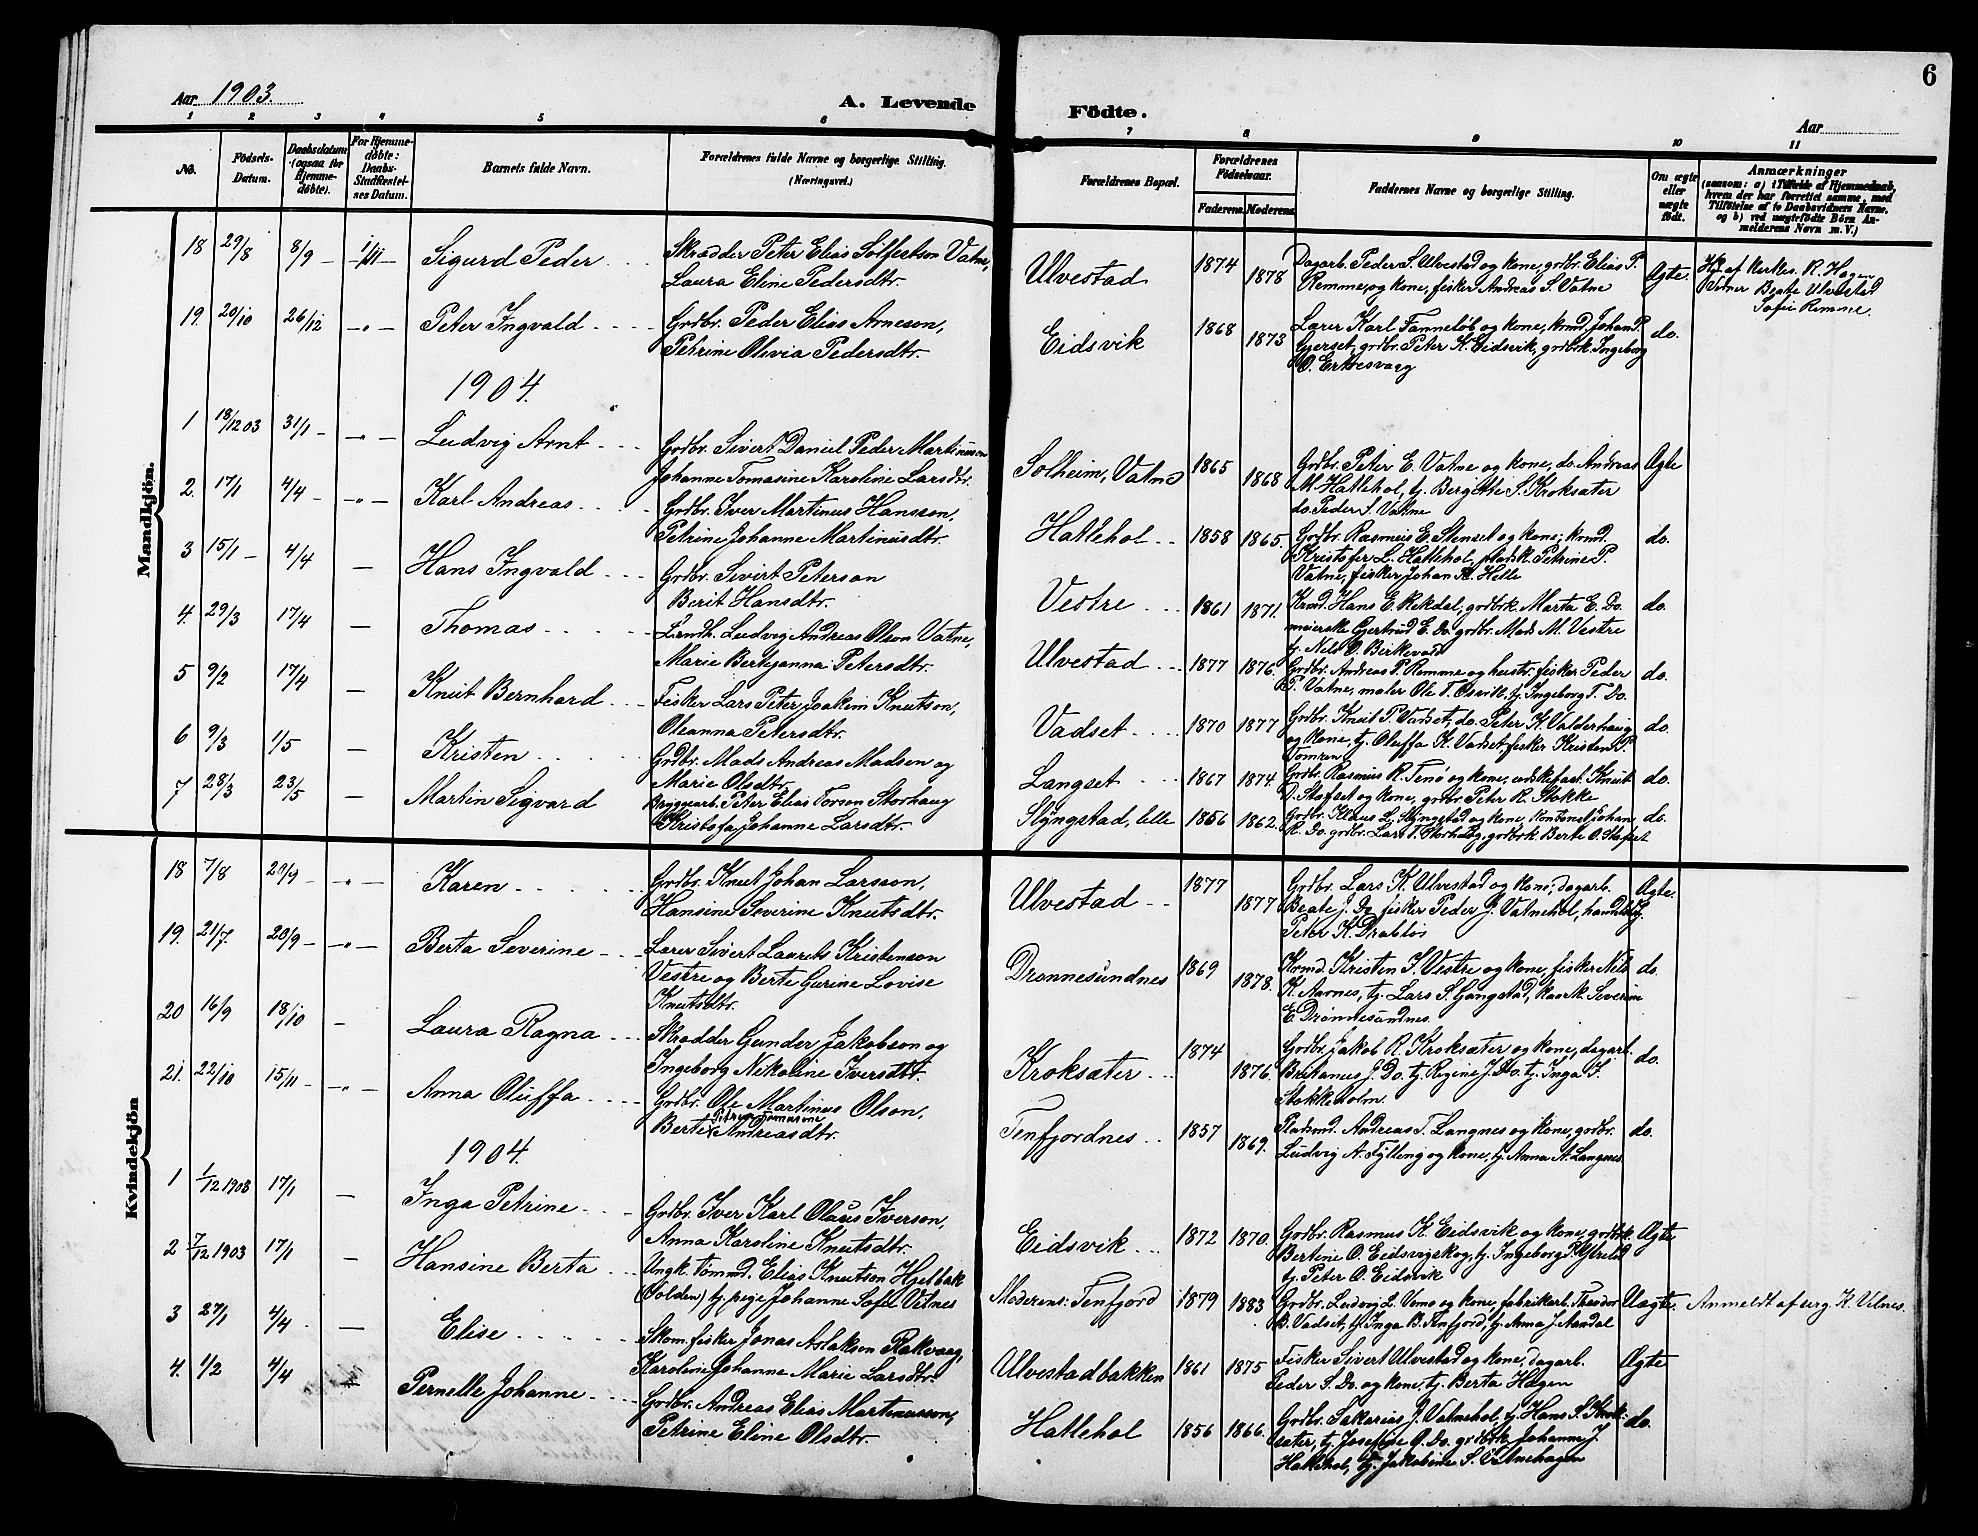 Aar 1903.
A. Levende
Födte.
6
Aar
1 2 3 4 5 6 7 8 9 10 11
No.
Födsels-Datum.
Daabsdatum (ogsaa for Hjemmedöbte).
For Hjemmedöbte: Daabs-Stadfæstelses Datum.
Barnets fulde Navn.
Forældrenes fulde Navne og borgerlige Stilling. (Næringsvei.)
Forældrenes Bopæl.
Forældrenes Födselsaar.
Faderens. Moderens.
Faddernes Navne og borgerlige Stilling.
Om ægte eller uægte födt.
Anmærkninger
(saasom: a) i Tilfælde af Hjemmedaab, hvem der har forrettet samme, med Tilföielse af to Daabsvidners Navne. og b) ved uægtefödte Börn Anmelderens Navn m. V.)
Mandkjön.
18 29/8 8/9 - 1/11 Sigurd Peder Skrædder Peter Elias Solfestson Vatne, Laura Eline Pedersdtr. Ulvestad 1874 1878 Dagarb. Peder S. Ulvestad og kone, grdbr. Elias P. Remme, og kone, fisker Andreas S. Vatne Ægte. Hj. af Kirkes. R. Hagen Vidner Beate Ulvestad Sofie Remme.
19. 20/10 26/12 - " - Peter Ingvald Grdbr. Peder Elias Arneson, Petrine Olivia Pedersdtr. Eidsvik 1868 1873 Lærer Karl Fanneløb og kone, krmd. Johan P. Gjerset, grdbr. Peter K. Eidsvik, grdbrk. Ingeborg O. Erknesvaag do.
1904.
1 18/12 03 31/1 - " - Ludvig Arnt Grdbr. Sivert Daniel Peder Martinusson Johanne Tomasine Karoline Larsdtr. Solheim, Vatne 1865 1868 Grdbr. Peter E. Vatne og kone, do. Andreas M. Hatlehol, tj. Bergitte S. Kroksæter do. Peder S. Vatne Ægte
2. 17/1 4/4 - " - Karl Andreas Grdbr. Iver Martinus Hansson, Petrine Johanne Martinusdtr. Hatlehol 1858 1865. Grdbr. Rasmus E. Stenset og kone, krmd. Kristofer L. Hatlehol, grdbrk. Petrine P. Vatne, fisker Johan K. Helle do.
3 15/1 - 4/4 - Hans Ingvald Grdbr. Sivert Peterson Berit Hansdtr. Vestre 1861 1871. Krmd. Hans E. Rekdal, grdbrk. Marta E. Do. meierske Gjertrud E. Do. grdbr. Mads M. Vestre tj. Nels O. Birkevold do.
4. 29/3 17/4 - Thomas Landh. Ludvig Andreas Olsen Vatne, Marie Bertejanna Petersdtr. Ulvestad 1877 1876. Grdbr. Andreas P. Remme og hustr. fisker Peder P. Vatne, maler Ole T. Osvik, tj. Ingeborg T. Do. do.
5 9/2 17/4 - Knut Bernhard Fisker Lars Peter Joakim Knutson, Oleanna Petersdtr. Vadset 1870 1877 Grdbr. Knut P. Vadset, do. Peter K. Valderhaug og kone, tj. Oluffa K. Vadset, fisker Kristen P. Tomren do.
6 9/3 1/5 - Kristen Grdbr. Mads Andreas Madson og Marie Olsdtr. Langset 1867 1874. Grdbr. Rasmus R. Tenø og kone, Knut D. Stafset og kone, grdbr. Peter R. Stokke do.
7 28/3 23/5 - Martin Sigvard Bryggearb. Peter Elias Torson Storhaug Kristofa Johanne Larsdtr. Slyngstad, lille 1856 1862. Grdbr. Klaus L. Slyngstad og kone, Johan R. Do. grdbr. Lars T. Storhaug, grdbrk. Berte O. Stafset do.
Kvindekjön
18 7/8 20/9 - " - Karen Grdbr. Knut Johan Larsson, Hansine Severine Knutsdtr. Ulvestad 1877 1877 Grdbr. Lars K. Ulvestad og kone, dagarb. Beate J. Do. fisker Peder J. Vatnehol, handelsbj. Peter K. Drabløs Ægte.
19. 21/7. 20/9 - " - Berta Severine Lærer Sivert Laurits Kristenson Vestre og Berte Gurine Lovise Knutsdtr. Drønnesundnes 1869 1878. Krmd. Kristen I. Vestre og kone, fisker Nils K. Aarnes, tj. Lars S. Gangstad, kaark. Severine E. Drønnesundnes. do.
20 16/9 18/10 - Laura Ragna Skrædder Gunder Jakobson og Ingeborg Nikoline Iversdtr. Kroksæter 1874 1876. Grdbr. Jakob R. Kroksæter og kone, dagarb. Bertanus J. Do. tj. Regine J. Do. tj. Inga S. Stokkeholm. do.
21. 22/10 15/11 - " - Anna Oluffa Grdbr. Ole Martinus Olson, Berte Petrine Tomasine Andreasdtr. Tenfjordnes 1857 1869. Pladsmd. Andreas T. Langnes og kone, grdbr. Ludvig A. Fylling og kone, tj. Anna A. Langnes do.
1904.
1 1/12 1903 17/1 - Inga Petrine Grdbr. Iver Karl Olaus Iverson, Anna Karoline Knutsdtr. Eidsvik 1872 1870. Grdbr. Rasmus K. Eidsvik og kone, grdbrk. Bertine O. Eidsvigskog, tj. Ingeborg P. Ytrelid tj. Peter O. Eidsvik Ægte
2 7/12 1903 17/1 - Hansine Berta Ungk. tømmd. Elias Knutson Hjelbak (Volden) tj. pige Johanne Sofie Vilnes Moderens: Tenfjord 1879 1883 Grdbr. Ludvig L. Vemo og kone, fabrikarb. Theodor B. Vadset, tj. Inga B. Tenfjord, tj. Anna J. Aandal Uægte. Anmeldt af erg. K. Vilnes.
3 27/1 4/4 - Elise Skom. fisker Jonas Aslakson Rakvaag, Karoline Johanne Marie Larsdtr. Ulvestadbakken 1861 1875 Fisker Sivert Ulvestad og kone, dagarb. Peder S. Do. og kone, tj. Berta Hagen Ægte
4. 1/2 4/4 - Pernelle Johanne Grdbr. Andreas Elias Martinusson, Petrine Eline Olsdtr. Hatlehol 1856 1866. Grdbr. Sakarias J. Vatnehol, tj. Hans S. Kroksæter, tj. Josefine O. Do. grdbrk. Johanne J. Hatlehol, tj. Jakobine S. Vatnehagen do.